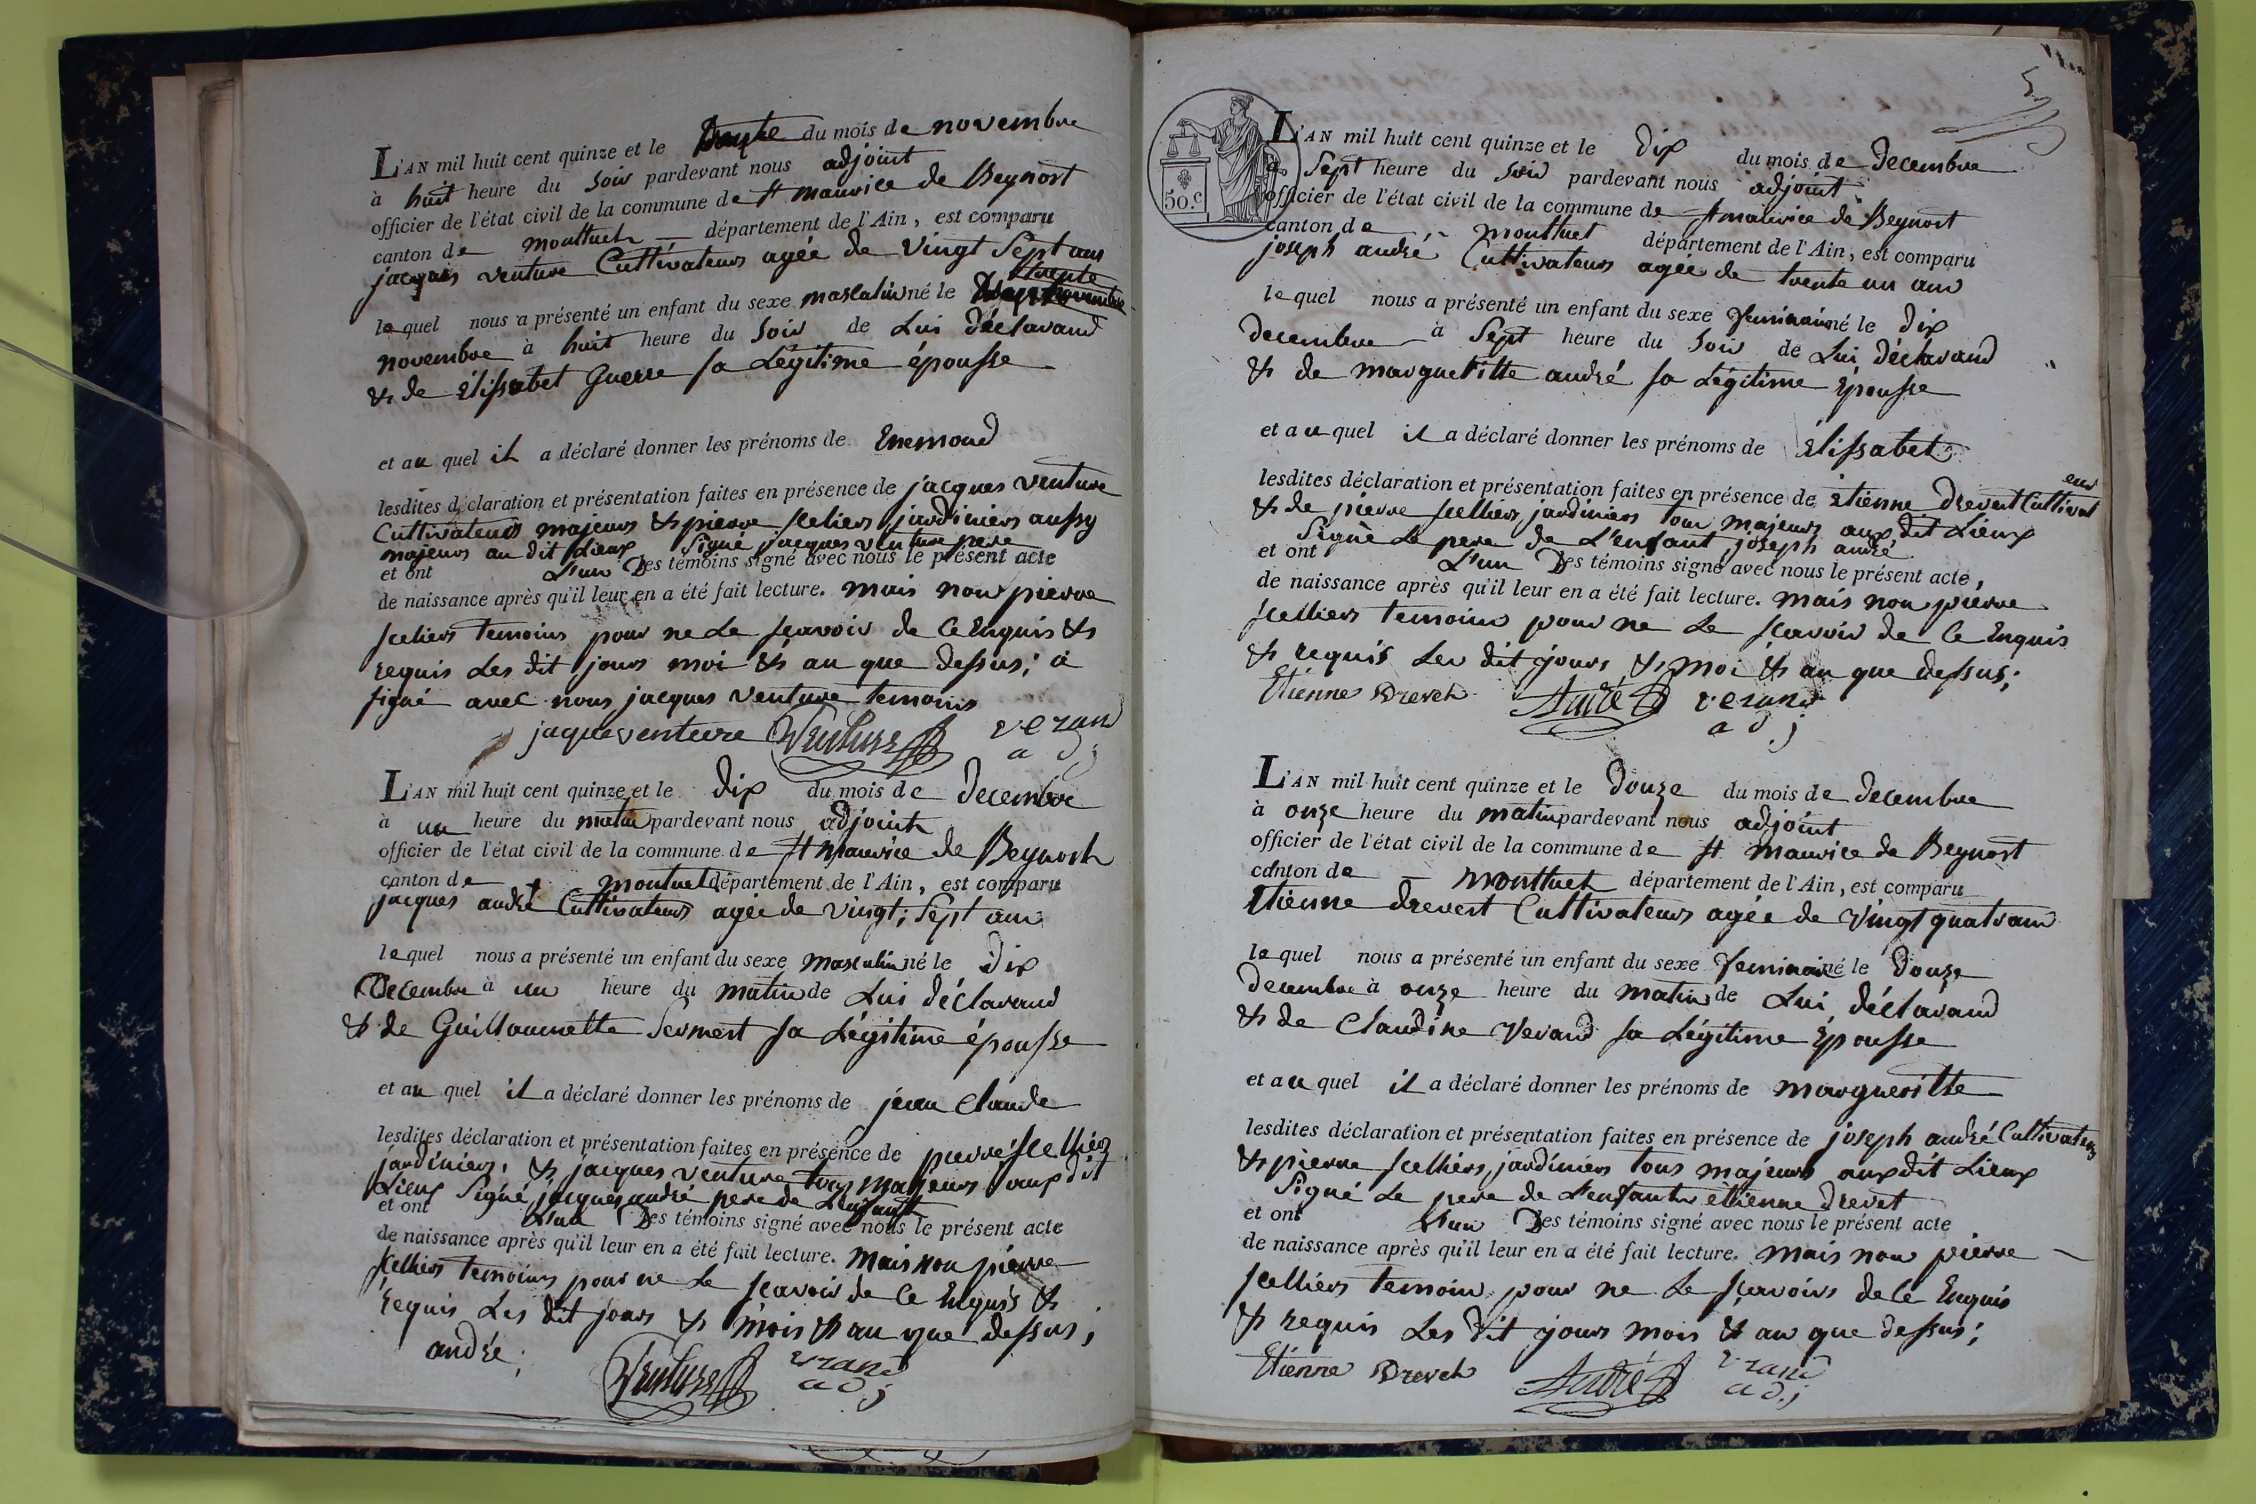 L'AN mil huit cent quinze et le trente du mois de novembre
à huit heure du soir pardevant nous adjoint
officier de l'état civil de la commune de st maurice de Beynost
canton de montluel département de l'Ain, est comparu
jacques venture Cultivateurs agée de vingt Sept ans
trente
lequel nous a présenté un enfant du sexe masculin né le
novembre à huit heure du soir de Lui déclarand
& de Elissabet Guerre sa Légitime épousse
et au quel il a déclaré donner les prénoms de Enemond
lesdites déclaration et présentation faites en présence de jacques venture
Cultivateurs majeurs & pierre sceliers jardiniers aussy
majeurs au dit Lieux Signé jacques venture pere
et ont L'un Des témoins signé avec nous le présent acte
de naissance après qu'il leur en a été fait lecture. mais non pierre
sceliers temoins pour ne Le scavoir de Ce Enquis &
requis Les dit jours moi & an que dessus; a
signé avec nous jacques venture temoins
jaque venteure Venture verand
adj
L'AN mil huit cent quinze et le dix du mois de decembre
à un heure du matin pardevant nous adjoint
officier de l'état civil de la commune de st Maurice de Beynost
canton de montuel département de l'Ain, est comparu
jacques andré Cultivateurs agée de vingt; Sept ans
lequel nous a présenté un enfant du sexe masculin né le dix
Decembre à un heure du matin de Lui déclarand
& de Guillaumette Sermest sa Légitime épousse
et au quel il a déclaré donner les prénoms de jean Claude
lesdites déclaration et présentation faites en présence de pierre scelliers
jardiniers, & jacques venture tous majeurs aux dit
Lieux Signé, jacques andré pere de L'enfant
et ont L'un Des témoins signé avec nous le présent acte
de naissance après qu'il leur en a été fait lecture. Mais non pierre
scelliers temoins pour ne Le scavoir de Ce Enquis &
requis Les dit jours & mois & an que dessus;
andré; Venture verand
adj
5
50.c
L'AN mil huit cent quinze et le dix du mois de decembre
à Sept heure du soir pardevant nous adjoint
officier de l'état civil de la commune de st maurice de Beynost
canton de montluel département de l'Ain, est comparu
joseph andré Cultivateurs agée de trente un ans
lequel nous a présenté un enfant du sexe feminain né le dix
decembre à Sept heure du soir de Lui déclarand
& de marguetitte andré sa Légitime Epousse
et au quel il a déclaré donner les prénoms de Elissabet
lesdites déclaration et présentation faites en présence de Etienne Drevet Cultivateurs
& de pierre scelliers jardiniers tous majeurs aux dit Lieux
Signé Le pere de L'enfant joseph andré
et ont L'un Des témoins signé avec nous le présent acte,
de naissance après qu'il leur en a été fait lecture. mais non pierre
scelliers temoins pour ne Le scavoir de Ce Enquis
& requis Les dit jours & moi & an que dessus;
Etienne Drevet André verand
adj
L'AN mil huit cent quinze et le douze du mois de decembre
à onze heure du matin pardevant nous adjoint
officier de l'état civil de la commune de st maurice de Beynost
canton de montluel département de l'Ain, est comparu
Etienne drevest Cultivateurs agée de vingt quatrans
lequel nous a présenté un enfant du sexe feminain né le douze
decembre à onze heure du matin de Lui déclarand
& de Claudine Verand sa Légitime Epousse
et au quel il a déclaré donner les prénoms de margueritte
lesdites déclaration et présentation faites en présence de joseph andré Cultivateurs
& pierre scelliers, jardiniers tous majeurs aux dit Lieux
Signé Le pere de L'enfant etienne drevet
et ont L'un Des témoins signé avec nous le présent acte
de naissance après qu'il leur en a été fait lecture. mais non pierre
scelliers temoin pour ne Le scavoirs de Ce Enquis
& requis Les dit jours mois & an que dessus;
Etienne Drevet André verand
adj